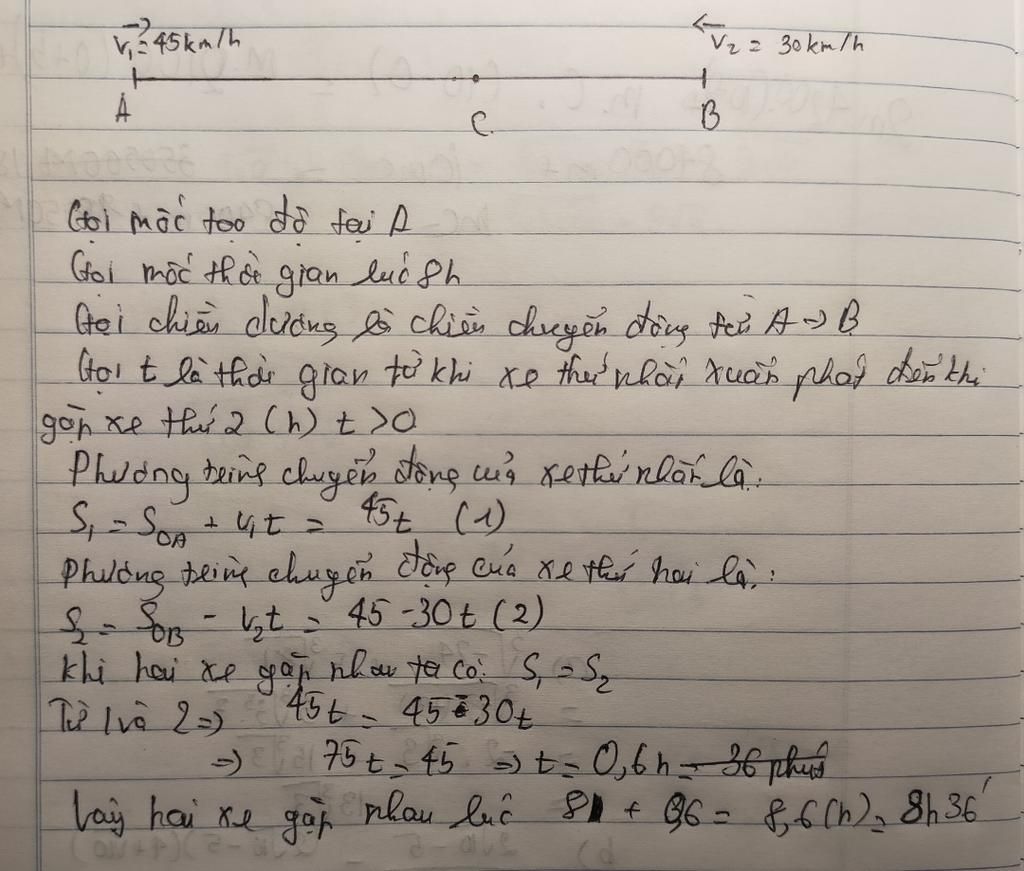 V₁ = 45km/h V₂ = 30km/h
A C B
Gọi mốc tọa độ tại A
Gọi mốc thời gian lúc 8h
Gọi chiều dương là chiều chuyển động từ A → B
Gọi t là thời gian từ khi xe thứ nhất xuất phát đến khi
gặp xe thứ 2 (h) t > 0
Phương trình chuyển động của xe thứ nhất là:
S₁ = S₀A + V₁t = 45t (1)
Phương trình chuyển động của xe thứ hai là:
S₂ = S₀B - V₂t = 45 - 30t (2)
Khi hai xe gặp nhau ta có: S₁ = S₂
Từ 1 và 2 => 45t = 45 - 30t
=> 75t = 45 => t = 0,6h = 36 phút
Vậy hai xe gặp nhau lúc 8 + 0,6 = 8,6(h) = 8h36'